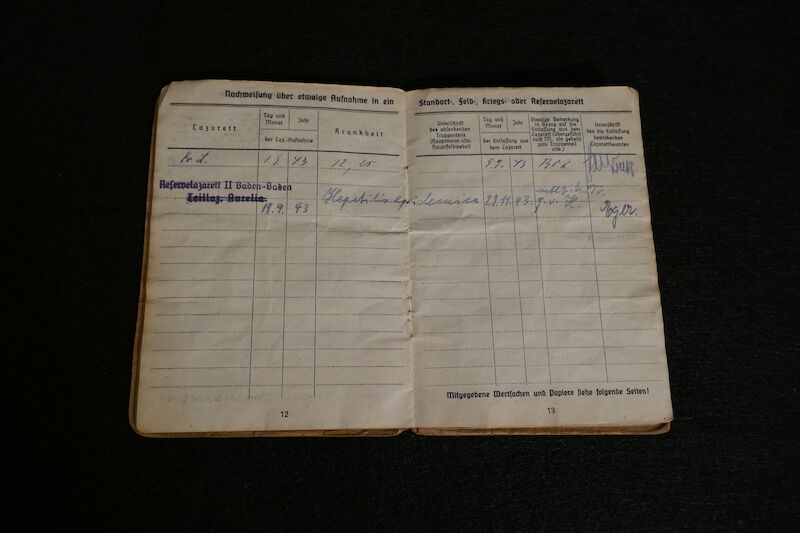 Nachweisung über etwaige Aufnahme in ein Standort-, Feld-, Kriegs- oder Reservelazarett
Lazarett
Tag und Monat
Jahr
der Laz.-Aufnahme
Krankheit
Unterschrift des absendenden Truppenteils (Hauptmann usw. Hauptfeldwebel)
Tag und Monat
Jahr
der Entlassung aus dem Lazarett
Etwaige Bemerkung in Bezug auf die Entlassung aus dem Lazarett (übergeführt nach M., als geheilt zum Truppenteil usw.)
Unterschrift des die Entlassung bewirkenden Lazarettbeamten
43 9.9. 43
Reservelazarett II Baden-Baden
Teillaz. Aurelia
18.9. 43 Hepatitis epidemica 29.11. 43
Mitgegebene Wertsachen und Papiere siehe folgende Seiten!
12
13